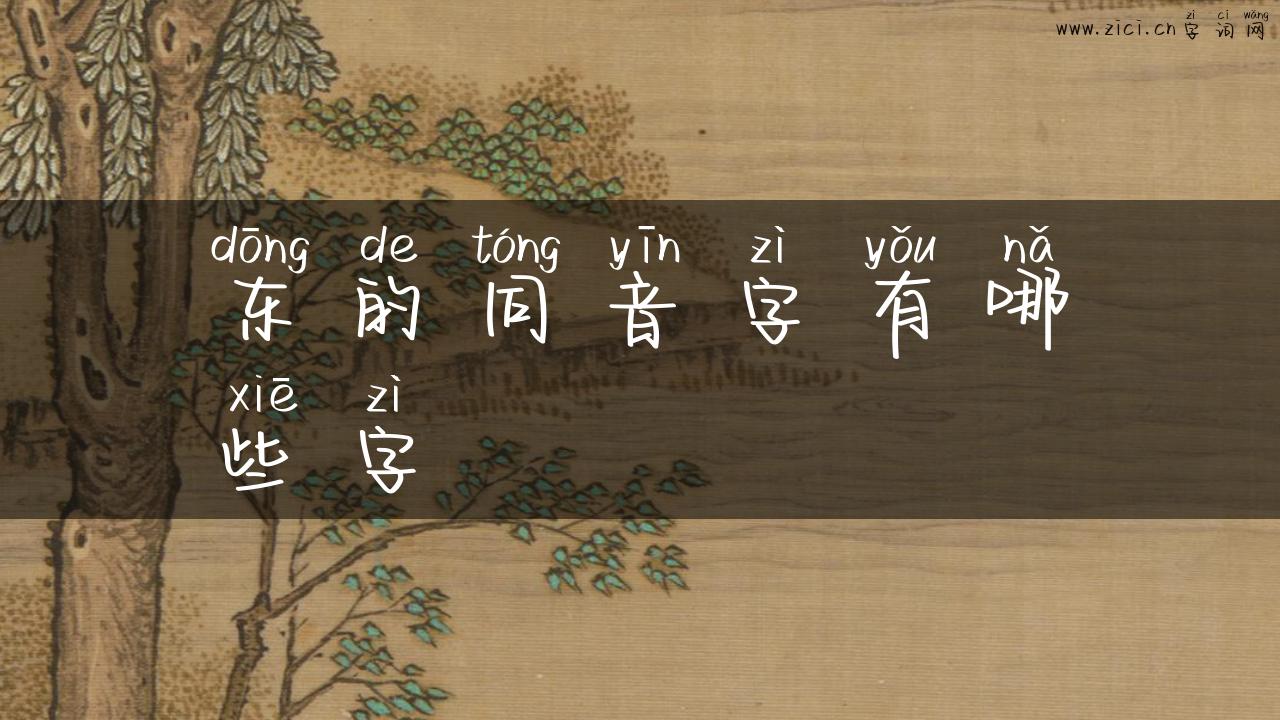 zì cí wǎng
www.zici.cn 字词网
dōng de tóng yīn zì yǒu nǎ
东的同音字有哪
xiē zì
些字